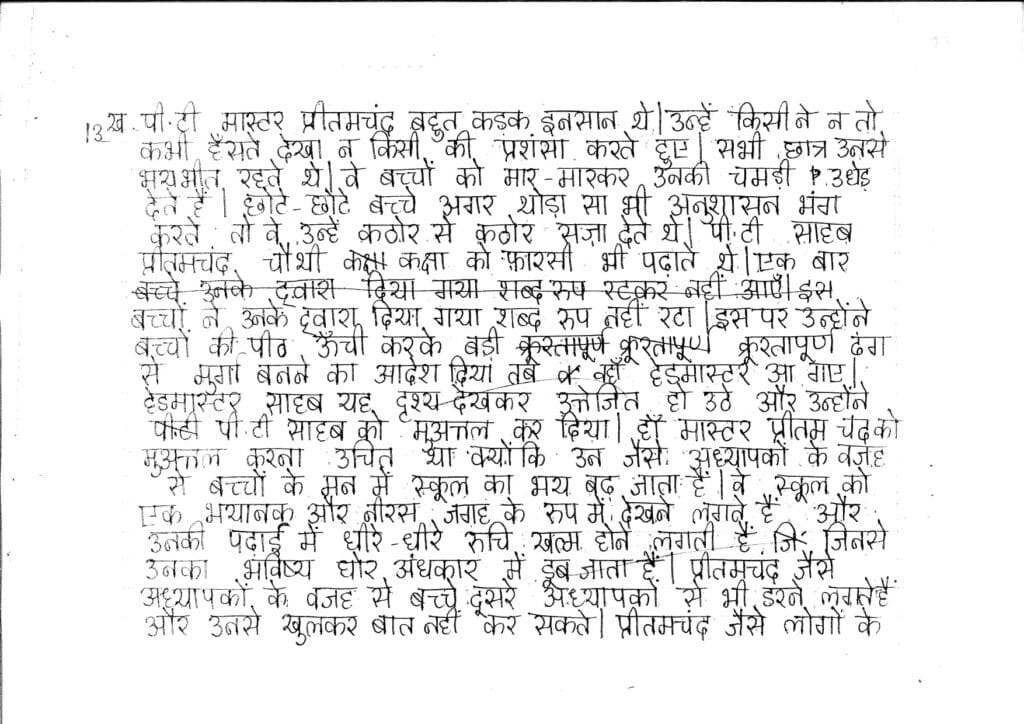 13ख. पी.टी मास्टर प्रीतमचंद बहुत कड़क इनसान थे। उन्हें किसीने न तो
कभी हँसते देखा न किसी की प्रशंसा करते हुए। सभी छात्र उनसे
भयभीत रहते थे। वे बच्चों को मार-मारकर उनकी चमड़ी उधेड़
देते हैं। छोटे-छोटे बच्चे अगर थोड़ा सा भी अनुशासन भंग
करते तो वे उन्हें कठोर से कठोर सज़ा देते थे। पी.टी साहब
प्रीतमचंद चौथी कक्षा कक्षा को फ़ारसी भी पढ़ाते थे। एक बार
बच्चे उनके द्वारा दिया गया शब्द रुप रटकर नहीं आएँ। इस
बच्चों ने उनके द्वारा दिया गया शब्द रुप नहीं रटा। इस पर उन्होंने
बच्चों की पीठ ऊँची करके बड़ी क्रूरतापूर्ण क्रूरतापूर्ण क्रूरतापूर्ण ढंग
से मुर्गा बनने का आदेश दिया तब वहाँ हेडमास्टर आ गए।
हेडमास्टर साहब यह दृश्य देखकर उत्तेजित हो उठे और उन्होंने
पी.टी पी.टी साहब को मुअत्तल कर दिया। हाँ मास्टर प्रीतम चंद को
मुअत्तल करना उचित था क्योंकि उन जैसे अध्यापकों के वजह
से बच्चों के मन में स्कूल का भय बढ़ जाता हैं। वे स्कूल को
एक भयानक और नीरस जगह के रुप में देखने लगते हैं और
उनकी पढ़ाई में धीरे-धीरे रुचि खत्म होने लगती हैं जि जिनसे
उनका भविष्य घोर अंधकार में डूब जाता हैं। प्रीतमचंद जैसे
अध्यापकों के वजह से बच्चे दूसरे अध्यापकों से भी डरने लगते हैं
और उनसे खुलकर बात नहीं कर सकते। प्रीतमचंद जैसे लोगों के